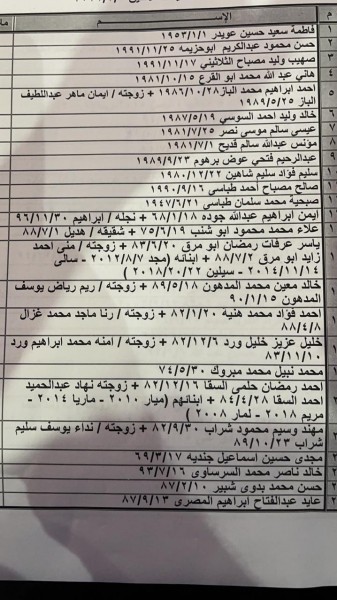 م الإســم
١ فاطمة سعيد حسين عويدر ١٩٥٣/١/١
٢ حسن محمود عبدالكريم ابوحزيمه ١٩٩١/١١/٢٥
٣ صهيب وليد مصباح الثلاثيني ١٩٩١/١١/١٧
٤ هاني عبد الله محمد ابو القرع ١٩٨١/١٠/١٥
٥ احمد ابراهيم محمد الباز ١٩٨٦/١٠/٢٨ + زوجته / ايمان ماهر عبداللطيف
الباز ١٩٨٩/٥/٢٥
٦ خالد وليد احمد السوسي ١٩٨٧/٥/١٩
٧ عيسى سالم موسى نصر ١٩٨١/٧/٢٥
٨ مؤنس عبدالله سالم قديح ١٩٨١/٧/١
٩ عبدالرحيم فتحي عوض برهوم ١٩٨٩/٩/٢٣
سليم فؤاد سليم شاهين ١٩٨٠/١٢/٢٢
صالح مصباح احمد طباسي ١٩٩٠/٩/١٦
صبحية محمد سلمان طباسي ١٩٤٧/٦/٢١
ايمن ابراهيم عبدالله جوده ٦٨/١/١٨ + نجله / ابراهيم ٩٦/١١/٣٠
علاء محمد محمود ابو شنب ٧٥/٦/١٩ + شقيقه / هديل ٨٨/٧/١
ياسر عرفات رمضان ابو مرق ٨٣/٦/٢٠ + زوجته / منى احمد
زايد ابو مرق ٨٨/٧/٢ + ابنائه (مجد ٢٠١٢/٨/٧ - سالي
٢٠١٤/١١/١٤ - سيلين ٢٠١٨/٢٠/٢٢ )
خالد معين محمد المدهون ٨٩/٥/١٨ + زوجته / ريم رياض يوسف
المدهون ٩٠/١/١٥
احمد فؤاد محمد هنية ٨٢/١/٢٠ + زوجته / رنا ماجد محمد غزال
٨٨/٤/٨
خليل عزيز خليل ورد ٨٢/١٢/٦ + زوجته / امنه محمد ابراهيم ورد
٨٣/١١/١٠
محمد نبيل محمد مبروك ٧٤/٥/٣٠
احمد رمضان حلمى السقا ٨٢/١٢/١٦ + زوجته نهاد عبدالحميد
احمد السقا ٨٤/٤/٢٨ + ابنائهم (ميار ٢٠١٠ - ماريا ٢٠١٤ -
مريم ٢٠١٨ - لمار ٢٠٠٨ )
مهند وسيم محمود شراب ٨٢/٩/٣٠ + زوجته / نداء يوسف سليم
شراب ٨٩/١٠/٢٣
مجدى حسين اسماعيل جنديه ٦٩/٣/١٧
خالد ناصر محمد السرساوى ٩٣/٧/١٦
حسن محمد بدوى شبير ٨٧/٢/١٠
عايد عبدالفتاح ابراهيم المصرى ٨٧/٩/١٣